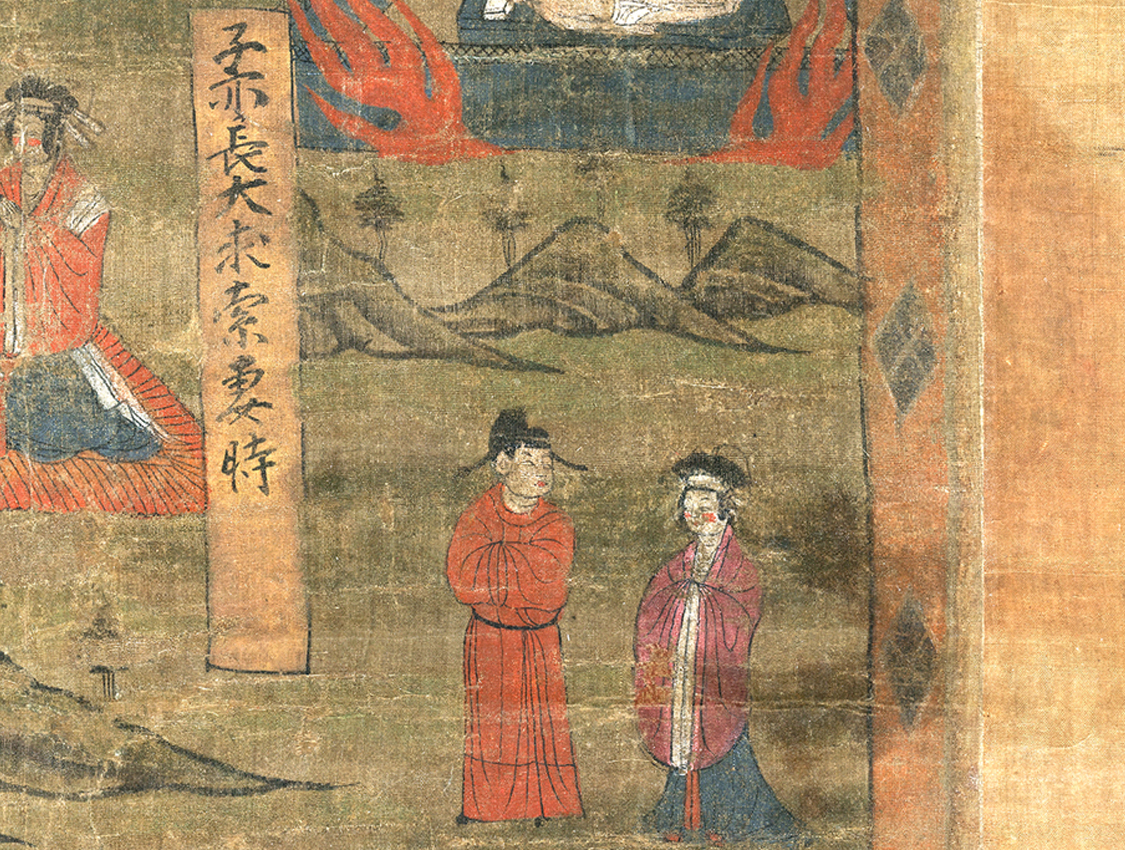 子亦長大求索妻時